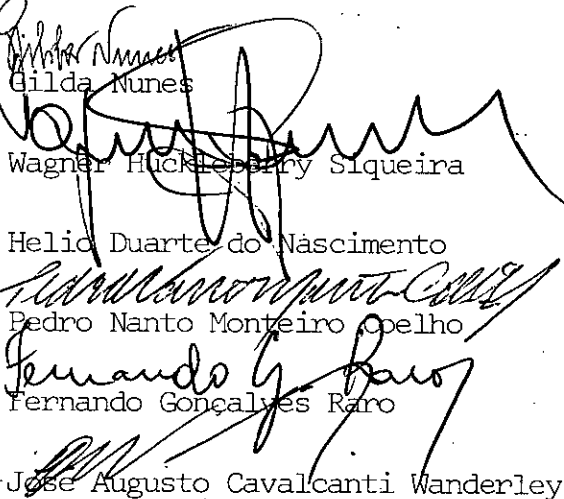 Gilda Nunes
Gilda Nunes
Wagner Huckleberry Siqueira
Helio Duarte do Nascimento
Pedro Nanto Monteiro Coelho
Fernando G. Raro
Fernando Gonçalves Raro
José Augusto Cavalcanti Wanderley